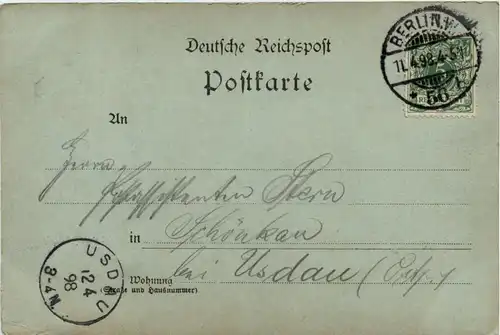 Deutsche Reichspost
Postkarte
BERLIN.W
11.4.98.4-5N
* 56 f.
An
Herrn
Postassistenten Stern
in Schönkau
bei Usdau (Ostpr.)
Wohnung
(Straße und Hausnummer)
USDAU
12 4
98
8-4N